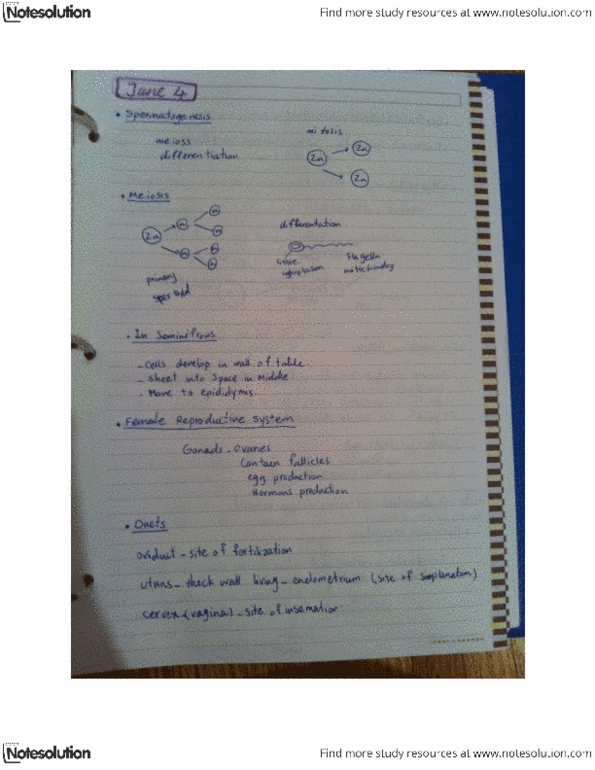 Notesolution
Find more study resources at www.notesolution.com
June 4
• Spermatogenesis
meioss
differentiation
mitosis
2n
2n
2n
• Meiosis
2n
n
n
n
n
n
n
primary
differentation
little
cytoplasm
Flagella
• In Seminifrous
- Cells develop in wall of tubule
- Sheet into Space in Middle
- Move to epididymis
• Female Reproductive system
Gonads - Ovaries
Contaen fallicles
egg production
Hormons production
• Ducts
oviduct - site of fortilization
uteruns - theck wall living - endometrium (site of
cervex (vagina) - site of insemation
Notesolution
Find more study resources at www.notesolution.com